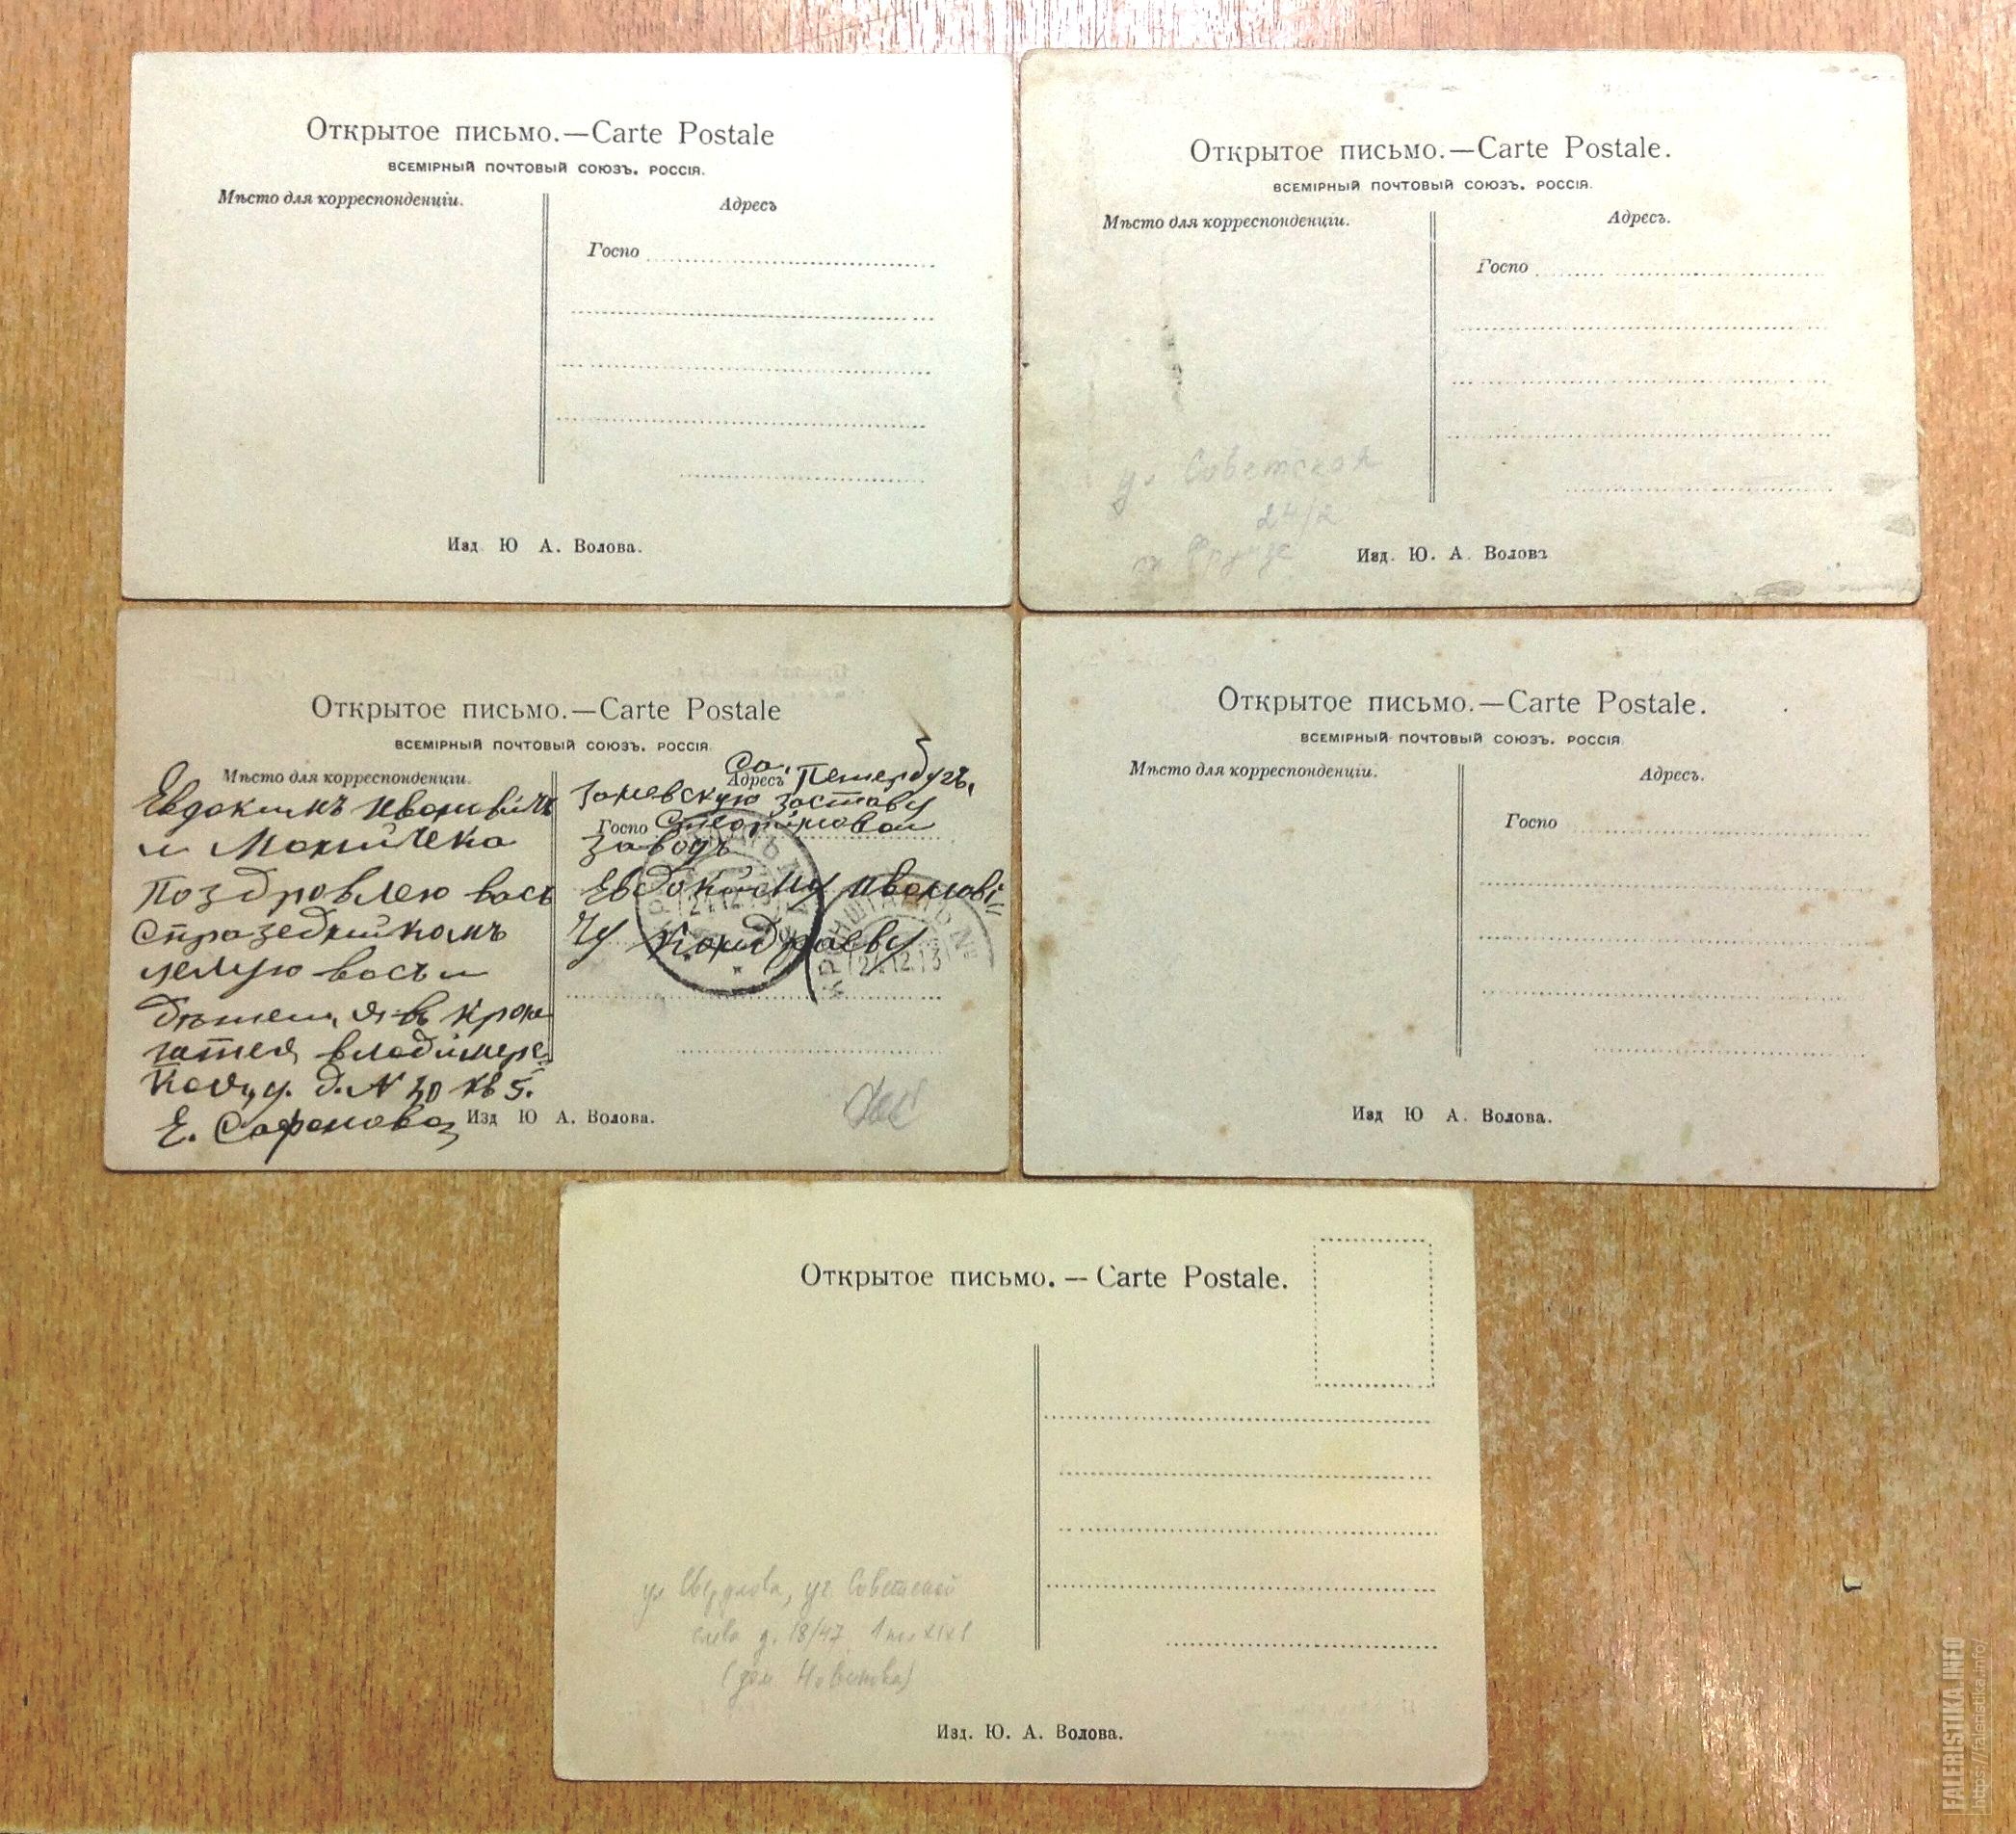 Открытое письмо.—Carte Postale
ВСЕМІРНЫЙ ПОЧТОВЫЙ СОЮЗЪ. РОССІЯ.
Мѣсто для корреспонденціи.
Адресъ
Госпо
Изд Ю А. Волова.
Открытое письмо.—Carte Postale.
ВСЕМІРНЫЙ ПОЧТОВЫЙ СОЮЗЪ. РОССІЯ.
Мѣсто для корреспонденціи.
Адресъ.
Госпо
ул Советская
24/2
Изд. Ю. А. Волова
Открытое письмо.—Carte Postale
ВСЕМІРНЫЙ ПОЧТОВЫЙ СОЮЗЪ. РОССІЯ
Мѣсто для корреспонденціи.
Евдокимъ Ивановичъ
и
Поздровлею васъ
спразедникомъ
целую васъ и
дѣтей, я в крон
Е. Сафонова
Адресъ
Петербугъ,
заставу
Госпо
заводъ
Евдокиму Иванови
чу Кондраеву
КРОНШТАДТЪ
24.12.13
Изд Ю А. Волова.
Открытое письмо.—Carte Postale.
ВСЕМІРНЫЙ ПОЧТОВЫЙ СОЮЗЪ. РОССІЯ
Мѣсто для корреспонденціи.
Адресъ.
Госпо
Изд Ю А. Волова.
Открытое письмо. — Carte Postale.
ул Свердлова, уг. Советской
слева д. 18/47
(дом Новикова)
Изд. Ю. А. Волова.
FALERISTIKA.INFO
https://faleristika.info/